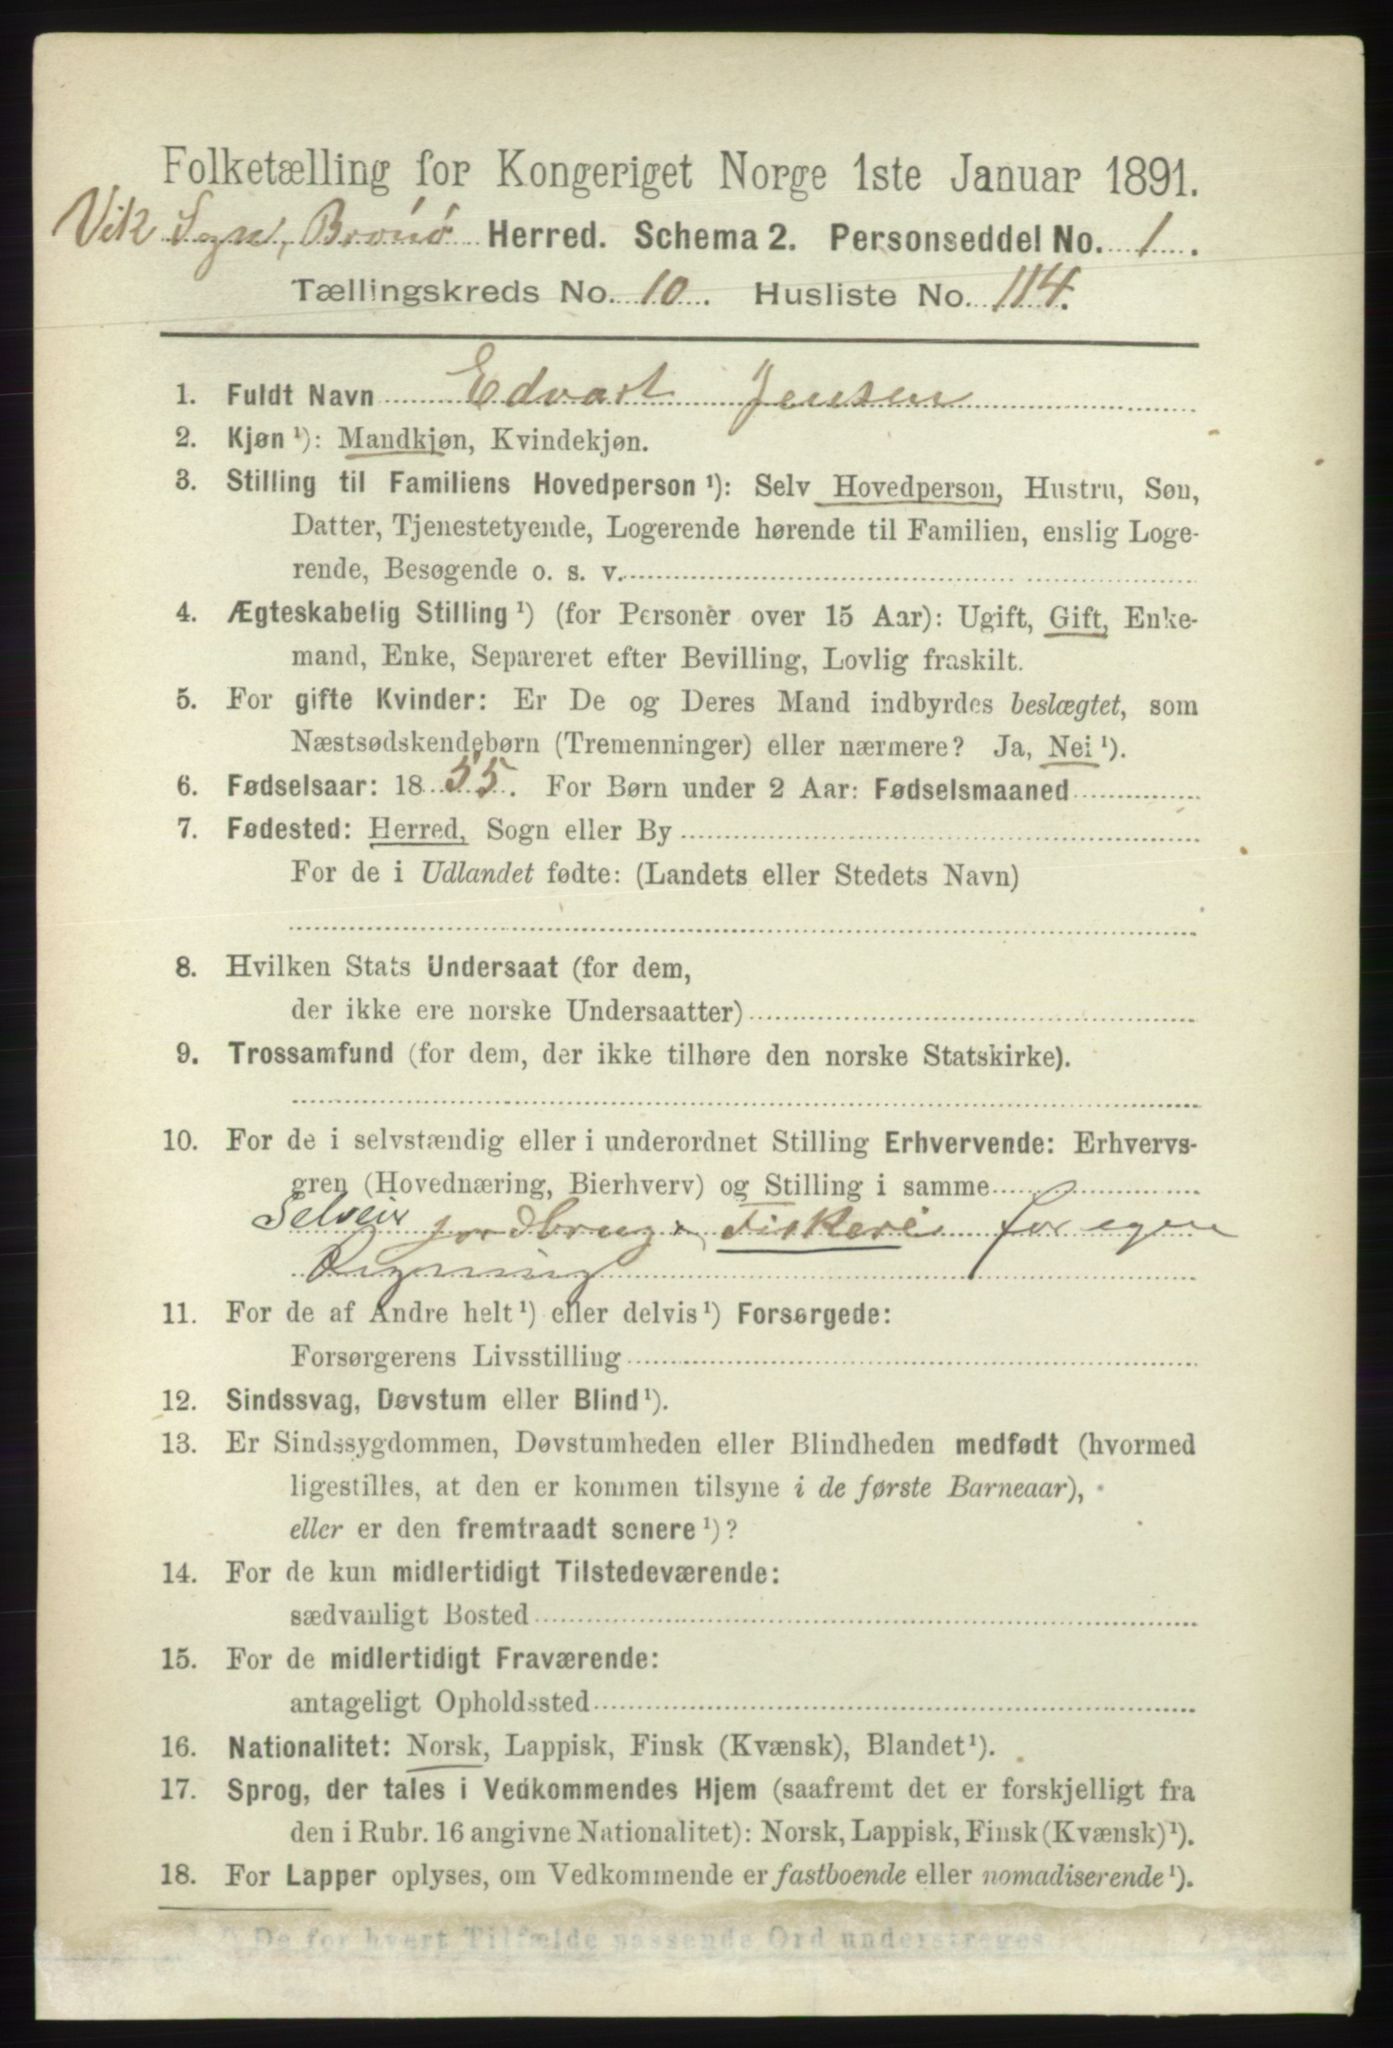 Folketælling for Kongeriget Norge 1ste Januar 1891.
Vik Sogn, Brønø Herred. Schema 2. Personseddel No. 1.
Tællingskreds No. 10. Husliste No. 114.
1. Fuldt Navn Edvart Jensen
2. Kjøn ¹): Mandkjøn, Kvindekjøn.
3. Stilling til Familiens Hovedperson ¹): Selv Hovedperson, Hustru, Søn,
Datter, Tjenestetyende, Logerende hørende til Familien, enslig Loge-
rende, Besøgende o. s. v.
4. Ægteskabelig Stilling ¹) (for Personer over 15 Aar): Ugift, Gift, Enke-
mand, Enke, Separeret efter Bevilling, Lovlig fraskilt.
5. For gifte Kvinder: Er De og Deres Mand indbyrdes beslægtet, som
Næstsødskendebørn (Tremenninger) eller nærmere? Ja, Nei ¹).
6. Fødselsaar: 1855. For Børn under 2 Aar: Fødselsmaaned
7. Fødested: Herred, Sogn eller By
For de i Udlandet fødte: (Landets eller Stedets Navn)
8. Hvilken Stats Undersaat (for dem,
der ikke ere norske Undersaatter)
9. Trossamfund (for dem, der ikke tilhøre den norske Statskirke).
10. For de i selvstændig eller i underordnet Stilling Erhvervende: Erhvervs-
gren (Hovednæring, Bierhverv) og Stilling i samme
Selveir jordbrug, Fiskeri for egen
Regning
11. For de af Andre helt ¹) eller delvis ¹) Forsørgede:
Forsørgerens Livsstilling
12. Sindssvag, Døvstum eller Blind ¹).
13. Er Sindssygdommen, Døvstumheden eller Blindheden medfødt (hvormed
ligestilles, at den er kommen tilsyne i de første Barneaar),
eller er den fremtraadt senere ¹)?
14. For de kun midlertidigt Tilstedeværende:
sædvanligt Bosted
15. For de midlertidigt Fraværende:
antageligt Opholdssted
16. Nationalitet: Norsk, Lappisk, Finsk (Kvænsk), Blandet ¹).
17. Sprog, der tales i Vedkommendes Hjem (saafremt det er forskjelligt fra
den i Rubr. 16 angivne Nationalitet): Norsk, Lappisk, Finsk (Kvænsk) ¹).
18. For Lapper oplyses, om Vedkommende er fastboende eller nomadiserende ¹).
¹) De for hvert Tilfælde passende Ord understreges